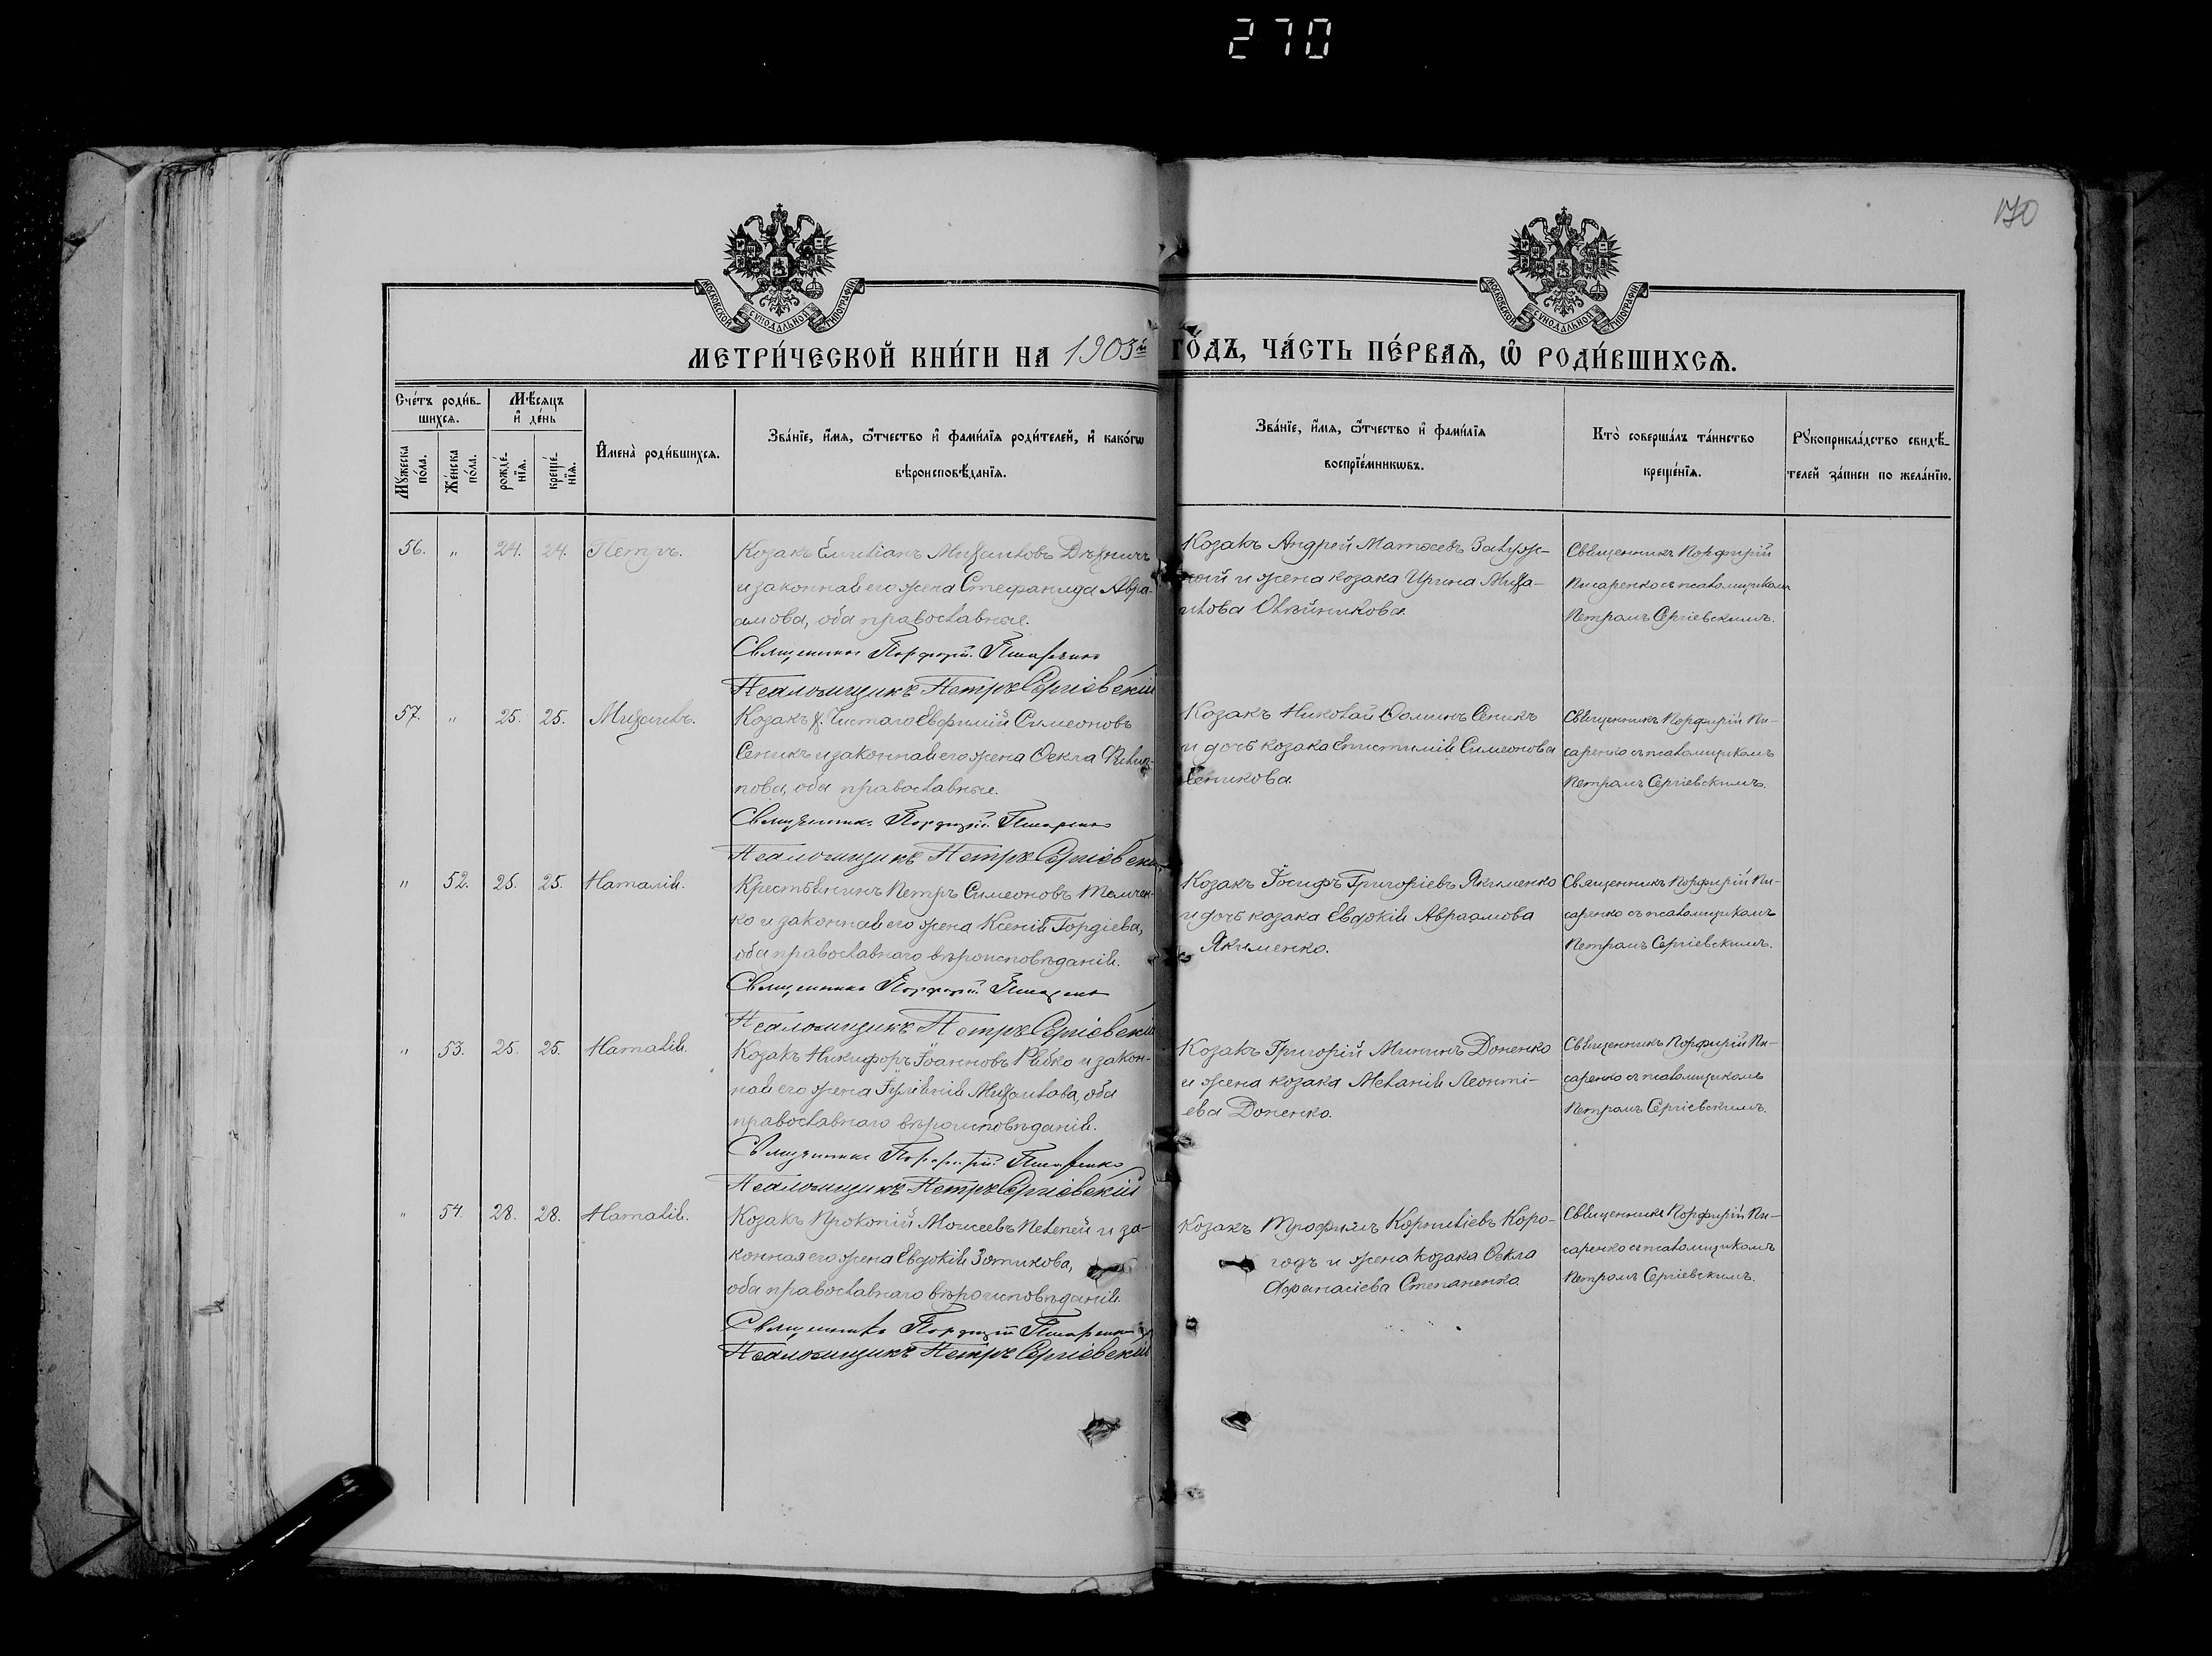 270
170
МОСКОВСКОЙ СѴНОДАЛЬНОЙ ТИПОГРАФІИ
МОСКОВСКОЙ СѴНОДАЛЬНОЙ ТИПОГРАФІИ
МЕТРИ́ЧЕСКОЙ КНИ́ГИ НА 1903й ГО́ДЪ, ЧА́СТЬ ПЕ́РВАѦ, Ѡ҆ РОДИ́ВШИХСѦ.
Сче́тъ роди́в-
шихсѧ.
Мꙋ́жеска по́ла.
Же́нска по́ла.
Мѣ́сѧцъ
и҆ де́нь
рожде́-
нїѧ.
креще́-
нїѧ.
И҆мена̀ роди́вшихсѧ.
Зва́нїе, и҆́мѧ, ѻ҆́тчество и҆ фами́лїѧ роди́телей, и҆ како́гѡ
вѣроисповѣ́данїѧ.
Зва́нїе, и҆́мѧ, ѻ҆́тчество и҆ фами́лїѧ
воспрїе́мникѡвъ.
Кто̀ соверша́лъ та́инство
креще́нїѧ.
Рꙋкоприкла́дство свидѣ́-
телей за́писи по жела́нїю.
56. " 24. 24. Петръ.
Козакъ Емиліанъ Михаиловъ
и законная его жена Стефанида Авра-
амова, оба православные.
Священникъ Порфирій Писаренко
Псаломщикъ Петръ Сергіевскій
Козакъ Андрей Матѳеевъ
и жена козака Ирина Миха-
илова Олѣйникова.
Священникъ Порфирій
Писаренко съ псаломщикомъ
Петромъ Сергіевскимъ.
57. " 25. 25. Михаилъ.
Козакъ х. Чистаго Евфимій Симеоновъ
Сеникъ и законная его жена Ѳекла
оба православные.
Священникъ Порфирій Писаренко
Псаломщикъ Петръ Сергіевскій
Козакъ Николай Ѳоминъ Сеникъ
и дочь козака Епистимія Симеонова
Сеникова.
Священникъ Порфирій Пи-
саренко съ псаломщикомъ
Петромъ Сергіевскимъ.
" 52. 25. 25. Наталія.
Крестьянинъ Петръ Симеоновъ Темчен-
ко и законная его жена Ксенія Гордіева,
оба православнаго вѣроисповѣданія.
Священникъ Порфирій Писаренко
Псаломщикъ Петръ Сергіевскій
Козакъ Іосифъ Григоріевъ Якименко
и дочь козака Евдокія Авраамова
Якименко.
Священникъ Порфирій Пи-
саренко съ псаломщикомъ
Петромъ Сергіевскимъ.
" 53. 25. 25. Наталія.
Козакъ Никифоръ Іоанновъ Рябко и закон-
ная его жена Іуліанія Михаилова, оба
православнаго вѣроисповѣданія.
Священникъ Порфирій Писаренко
Псаломщикъ Петръ Сергіевскій
Козакъ Григорій Мининъ Доненко
и жена козака Меланія Леонті-
ева Доненко.
Священникъ Порфирій Пи-
саренко съ псаломщикомъ
Петромъ Сергіевскимъ.
" 54. 28. 28. Наталія.
Козакъ Прокопій Моисеевъ Пелепей и за-
конная его жена Евдокія Зотикова,
оба православнаго вѣроисповѣданія.
Священникъ Порфирій Писаренко
Псаломщикъ Петръ Сергіевскій
Козакъ Трофимъ Корниліевъ Коро-
годъ и жена козака Ѳекла
Афанасіева Степаненко
Священникъ Порфирій Пи-
саренко съ псаломщикомъ
Петромъ Сергіевскимъ.